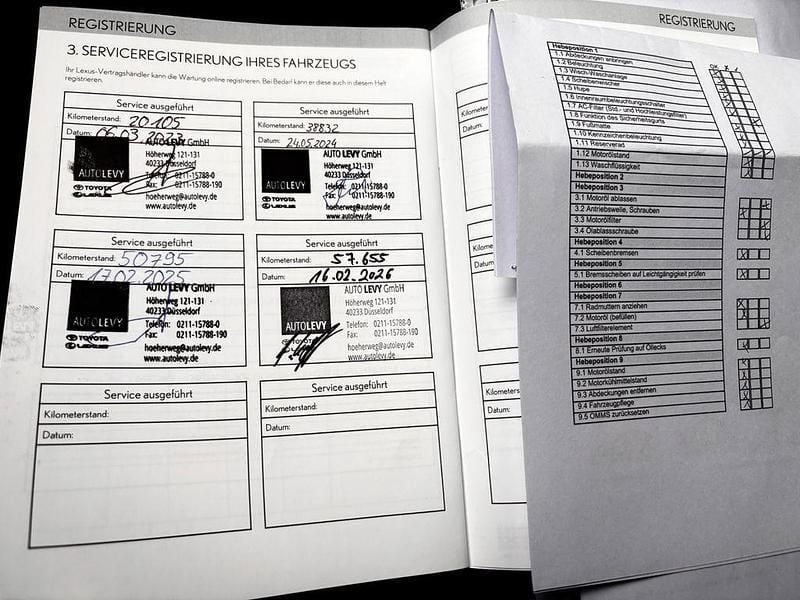 REGISTRIERUNG
3. SERVICEREGISTRIERUNG IHRES FAHRZEUGS
Ihr Lexus-Vertragshändler kann die Wartung online registrieren. Bei Bedarf kann er diese auch in diesem Heft
registrieren.
Service ausgeführt
Kilometerstand: 20105
Datum: 06.03.2023
AUTO LEVY GmbH
Höherweg 121-131
40233 Düsseldorf
Telefon: 0211-15788-0
Fax: 0211-15788-190
hoeherweg@autolevy.de
www.autolevy.de
AUTOLEVY
TOYOTA
LEXUS
Service ausgeführt
Kilometerstand: 38832
Datum: 24.05.2024
AUTO LEVY GmbH
Höherweg 121-131
40233 Düsseldorf
Telefon: 0211-15788-0
Fax: 0211-15788-190
hoeherweg@autolevy.de
www.autolevy.de
AUTOLEVY
TOYOTA
LEXUS
Service ausgeführt
Kilometerstand: 50795
Datum: 17.02.2025
AUTO LEVY GmbH
Höherweg 121-131
40233 Düsseldorf
Telefon: 0211-15788-0
Fax: 0211-15788-190
hoeherweg@autolevy.de
www.autolevy.de
AUTOLEVY
TOYOTA
LEXUS
Service ausgeführt
Kilometerstand: 57.655
Datum: 16.02.2026
AUTO LEVY GmbH
Höherweg 121-131
40233 Düsseldorf
Telefon: 0211-15788-0
Fax: 0211-15788-190
hoeherweg@autolevy.de
www.autolevy.de
AUTOLEVY
TOYOTA
Service ausgeführt
Kilometerstand:
Datum:
Service ausgeführt
Kilometerstand:
Datum:
REGISTRIERUNG
Kilometerst
Datum:
Kilometers
Datum:
Kilometers
Datum:
Hebeposition 1
1.1 Abdeckungen anbringen
1.2 Beleuchtung
1.3 Wisch-Waschanlage
1.4 Scheibenwischer
1.5 Hupe
1.6 Innenraumbeleuchtungsschalter
1.7 AC-Filter (Std.- und Hochleistungsfilter)
1.8 Funktion des Sicherheitsgurts
1.9 Fußmatte
1.10 Kennzeichenbeleuchtung
1.11 Reserverad
1.12 Motorölstand
1.13 Waschflüssigkeit
Hebeposition 2
Hebeposition 3
3.1 Motoröl ablassen
3.2 Antriebswelle, Schrauben
3.3 Motorölfilter
3.4 Ölablassschraube
Hebeposition 4
4.1 Scheibenbremsen
Hebeposition 5
5.1 Bremsscheiben auf Leichtgängigkeit prüfen
Hebeposition 6
Hebeposition 7
7.1 Radmuttern anziehen
7.2 Motoröl (befüllen)
7.3 Luftfilterelement
Hebeposition 8
8.1 Erneute Prüfung auf Öllecks
Hebeposition 9
9.1 Motorölstand
9.2 Motorkühlmittelstand
9.3 Abdeckungen entfernen
9.4 Fahrzeugpflege
9.5 OMMS zurücksetzen